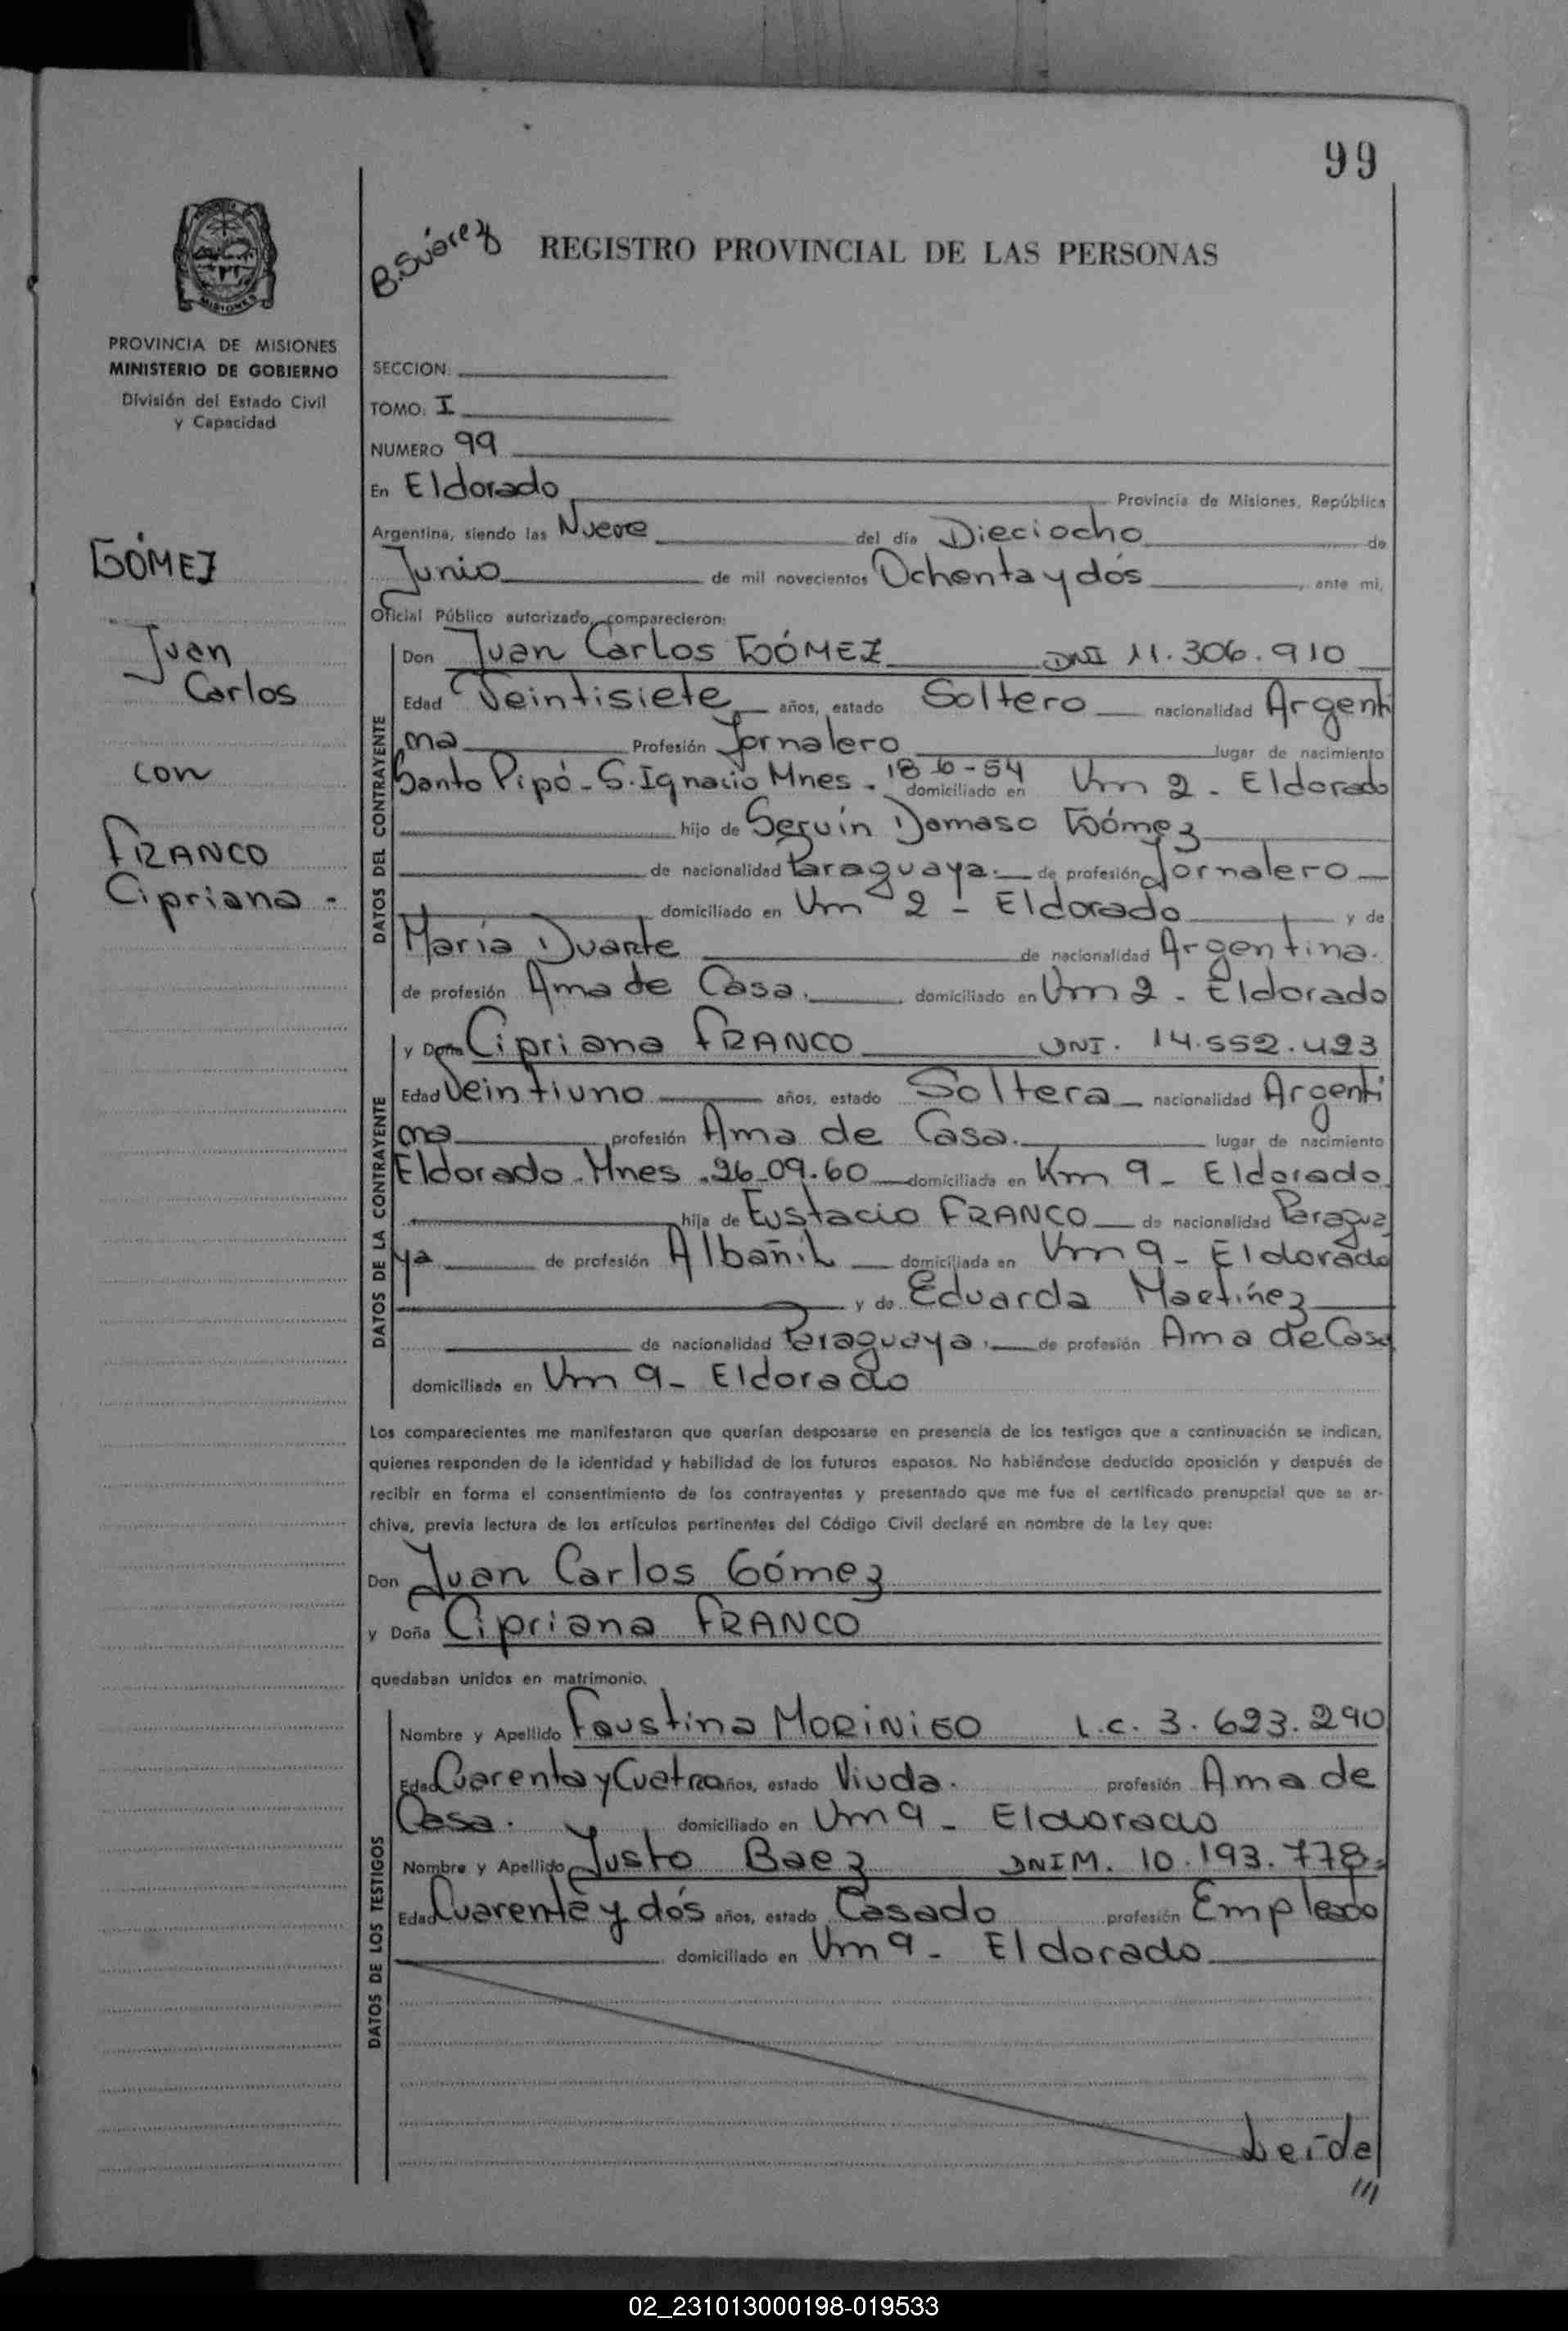 99
B. Suárez
REGISTRO PROVINCIAL DE LAS PERSONAS
MISIONES
PROVINCIA DE MISIONES
MINISTERIO DE GOBIERNO
División del Estado Civil
y Capacidad
GÓMEZ
Juan
Carlos
con
FRANCO
Cipriana -
SECCION:
TOMO: I
NUMERO 99
En Eldorado Provincia de Misiones, República
Argentina, siendo las Nueve del día Dieciocho de
Junio de mil novecientos Ochenta y dós, ante mi,
Oficial Público autorizado, comparecieron:
DATOS DEL CONTRAYENTE
Don Juan Carlos GÓMEZ DNI 11.306.910
Edad Veintisiete años, estado Soltero nacionalidad Argenti
na Profesión Jornalero lugar de nacimiento
Santo Pipó - S. Ignacio Mnes. 18-6-54 domiciliado en Km 2 - Eldorado
hijo de Serviín Damaso Gómez
de nacionalidad Paraguaya. de profesión Jornalero
domiciliado en Km 2 - Eldorado y de
María Duarte de nacionalidad Argentina.
de profesión Ama de Casa. domiciliado en Km 2 - Eldorado
DATOS DE LA CONTRAYENTE
y Doña Cipriana FRANCO DNI. 14.552.423
Edad Veintiuno años, estado Soltera nacionalidad Argenti
na profesión Ama de Casa. lugar de nacimiento
Eldorado - Mnes. 26-09-60 domiciliada en Km 9 - Eldorado
hija de Eustacio FRANCO de nacionalidad Paragua
ya de profesión Albañil domiciliada en Km 9 - Eldorado
y de Eduarda Martínez
de nacionalidad Paraguaya. de profesión Ama de Casa
domiciliada en Km 9 - Eldorado
Los comparecientes me manifestaron que querían desposarse en presencia de los testigos que a continuación se indican,
quienes responden de la identidad y habilidad de los futuros esposos. No habiéndose deducido oposición y después de
recibir en forma el consentimiento de los contrayentes y presentado que me fue el certificado prenupcial que se ar-
chiva, previa lectura de los artículos pertinentes del Código Civil declaré en nombre de la Ley que:
Don Juan Carlos Gómez
y Doña Cipriana FRANCO
quedaban unidos en matrimonio.
DATOS DE LOS TESTIGOS
Nombre y Apellido Faustina MORINIGO L.C. 3.623.290
Edad Cuarenta y Cuatro años, estado Viuda. profesión Ama de
Casa. domiciliado en Km 9 - Eldorado
Nombre y Apellido Justo Baez DNIM. 10.193.778
Edad Cuarenta y dós años, estado Casado profesión Empleado
domiciliado en Km 9 - Eldorado
Leída
///
02_231013000198-019533